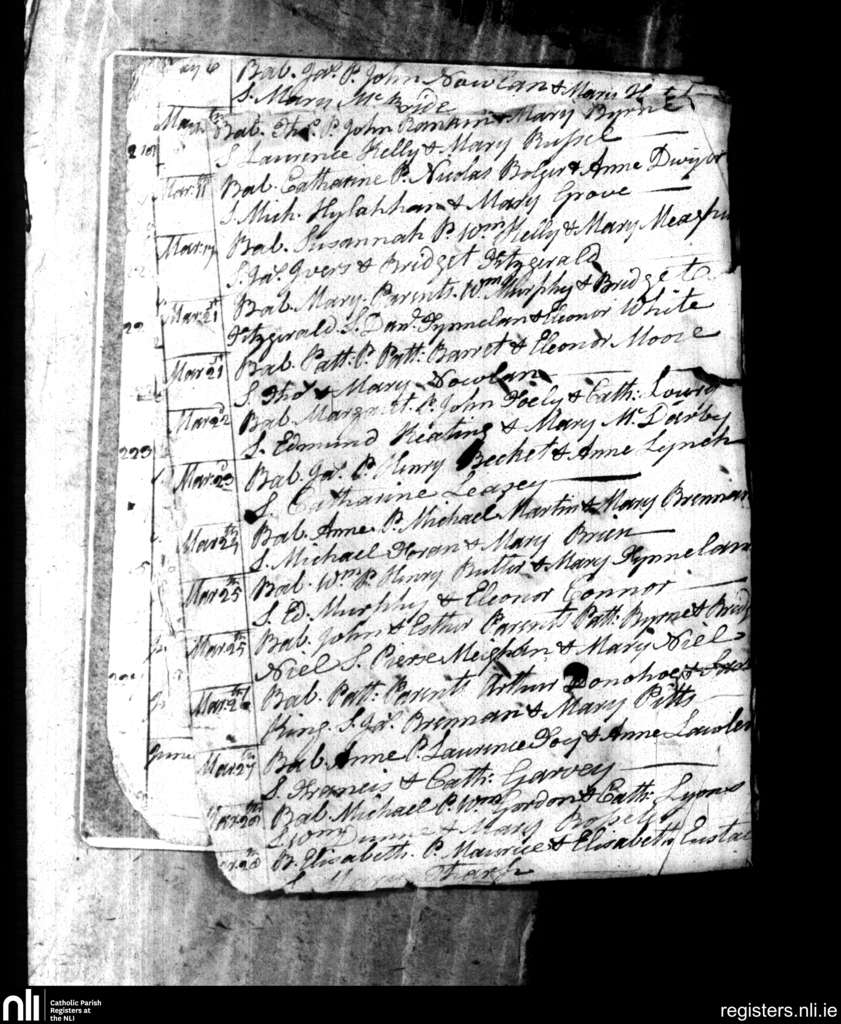 6 Bab. Jas. P. John Nowlan & Mary
S. Mary McBride
Mar. Bab. Thos. P. John Rankin & Mary Byrne
S. Laurence Kelly & Mary Russel
Mar. 11th Bab. Catharine P. Nicolas Bolger & Anne Dwyer
S. Mich. & Mary Grove
Mar. 17 Bab. Susannah P. Wm. Kelly & Mary
S. Jas. Ivers & Bridget Fitzgerald
Mar. 21st Bab. Mary. Parents. Wm. Murphy & Bridget
Fitzgerald. S. Danl. Fynnelan & Eleonor White
Mar. 21st Bab. Patt: P. Patt: Barret & Eleonor Moore
S. Thos. & Mary Nowlan
Mar. 22d Bab. Margaret. P. John Foely & Cath:
S. Edmund Keating & Mary McDarby
223
Mar. 23d Bab. Jas. P. Henry Becket & Anne Lynch
S. Catharine Leasey
Mar. 24th Bab. Anne. P. Michael Martin & Mary Brennan
S. Michael Horan & Mary Brien
Mar. 25th Bab. Wm. P. Henry Butler & Mary Fynnelan
S. Ed. Murphy & Eleonor Connor
Mar. 25th Bab. John & Esther Parents Patt: Byrne & Bridg
Niel S. Pierse Meighan & Mary Niel
Mar. 26th Bab. Patt: Parents Arthur Donohoe &
King. S. Jas. Brennan & Mary Pitts
June
Mar. 27th Bab. Anne P. Laurence Foy & Anne Lawler
S. Francis & Cath: Garvey
Mar. 28th Bab. Michael P. Wm. Gordon & Cath: Lyons
S. Wm. Dunne & Mary
28 B. Elisabeth. P. Maurice & Elisabeth Eustac
S. Mary
nli Catholic Parish
Registers at
the NLI
registers.nli.ie